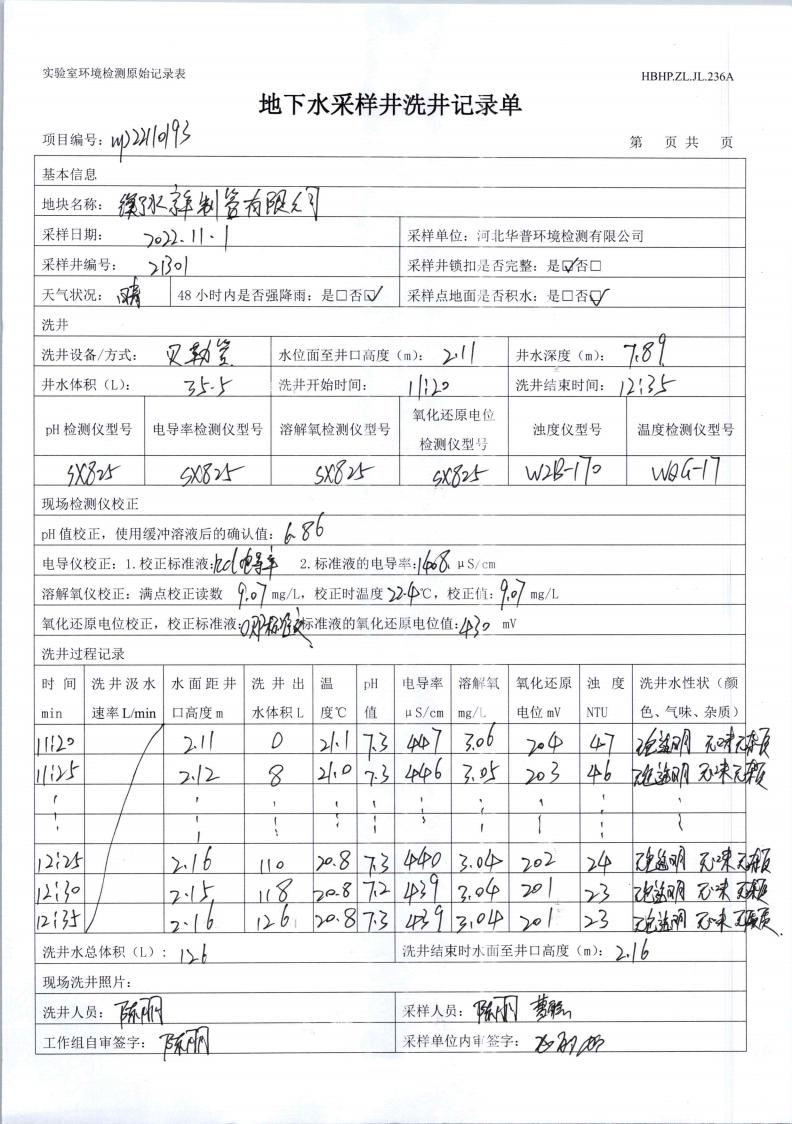 实验室环境检测原始记录表 HBHP.ZL.JL.236A
地下水采样井洗井记录单
项目编号: 22110193 第 页 共 页
基本信息
地块名称: 衡水京华制管有限公司
采样日期: 2022.11.1 采样单位: 河北华普环境检测有限公司
采样井编号: 2J301 采样井锁扣是否完整: 是☑否□
天气状况: 晴 48 小时内是否强降雨: 是□否☑ 采样点地面是否积水: 是□否☑
洗井
洗井设备/方式: 贝勒管 水位面至井口高度(m): 2.11 井水深度(m): 7.89
井水体积(L): 35.5 洗井开始时间: 11:20 洗井结束时间: 12:35
pH 检测仪型号 电导率检测仪型号 溶解氧检测仪型号 氧化还原电位检测仪型号 浊度仪型号 温度检测仪型号
SX825 SX825 SX825 SX825 WZB-170 WQG-17
现场检测仪校正
pH 值校正, 使用缓冲溶液后的确认值: 6.86
电导仪校正: 1.校正标准液: kcl电导率 2.标准液的电导率: 1408 μS/cm
溶解氧仪校正: 满点校正读数 9.07 mg/L, 校正时温度 22.4℃, 校正值: 9.07 mg/L
氧化还原电位校正, 校正标准液: 标准液的氧化还原电位值: 430 mV
洗井过程记录
时间 min 洗井汲水速率 L/min 水面距井口高度 m 洗井出水体积 L 温度℃ pH 值 电导率 μS/cm 溶解氧 mg/L 氧化还原电位 mV 浊度 NTU 洗井水性状(颜色、气味、杂质)
11:20 2.11 0 21.1 7.3 447 3.06 204 47 无色透明 无味 无杂质
11:25 2.12 8 21.0 7.3 446 3.05 203 46 无色透明 无味 无杂质
12:25 2.16 110 20.8 7.3 440 3.04 202 24 无色透明 无味 无杂质
12:30 2.15 118 20.8 7.2 439 3.04 201 23 无色透明 无味 无杂质
12:35 2.16 126 20.8 7.3 439 3.04 201 23 无色透明 无味 无杂质
洗井水总体积(L): 126 洗井结束时水面至井口高度(m): 2.16
现场洗井照片:
洗井人员: 陈丽 采样人员: 陈丽
工作组自审签字: 陈丽 采样单位内审签字: